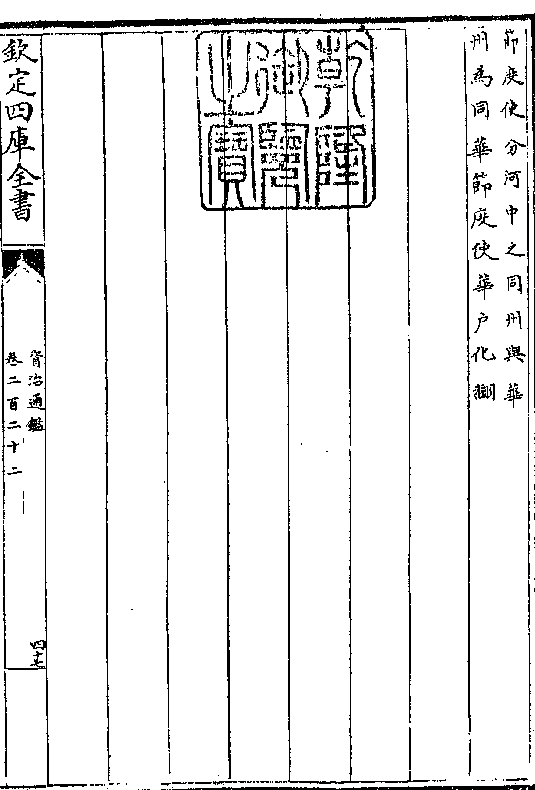 節度使分河中之同州與華
州為同華節度使華户化翻
乾隆
御覽
之寶
欽定四庫全書
資治通鑑
卷二百二十二
四十七